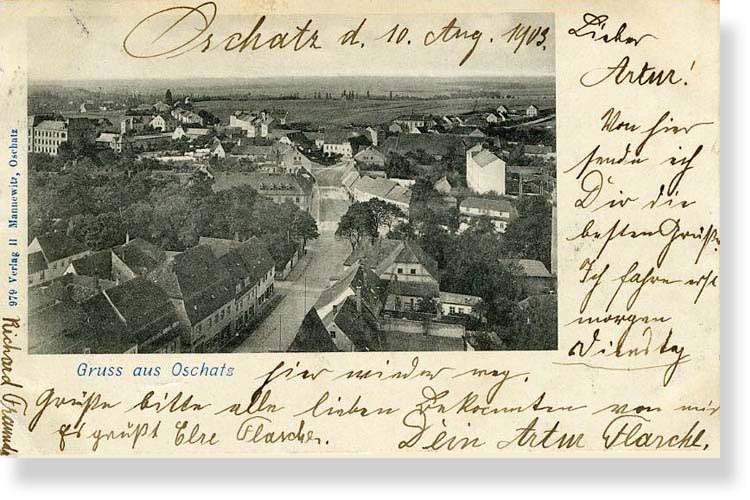 Oschatz d. 10. Aug. 1903.
Lieber
Artur!
Von hier
sende ich
Dir die
besten Grüße.
Ich fahre erst
morgen
Dienstag
979 Verlag H Mannewitz, Oschatz
Gruss aus Oschatz
hier wieder weg.
Grüße bitte alle lieben Bekannten von mir
Es grüßt Else Flasche.
Dein Artur Flasche.
Richard